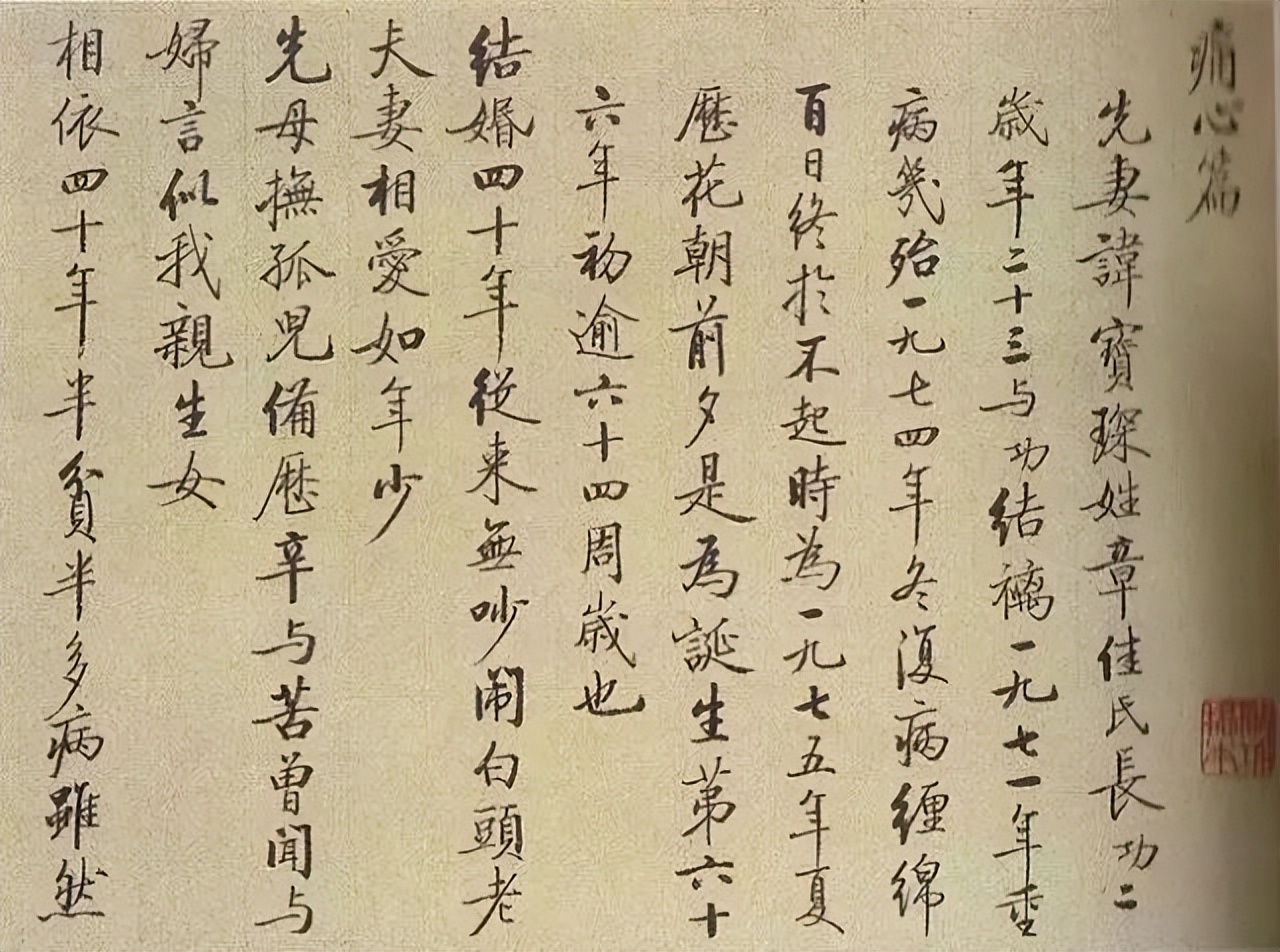 痛心篇
先妻諱寶琛姓章佳氏長功二
歲年二十三与功結褵一九七一年重
病幾殆一九七四年冬復病纏綿
百日終扵不起時為一九七五年夏
歷花朝前夕是為誕生第六十
六年初逾六十四周歲也
結婚四十年從来無吵鬧白頭老
夫妻相愛如年少
先母撫孤兒備歷辛与苦曾聞与
婦言似我親生女
相依四十年半貧半多病雖然